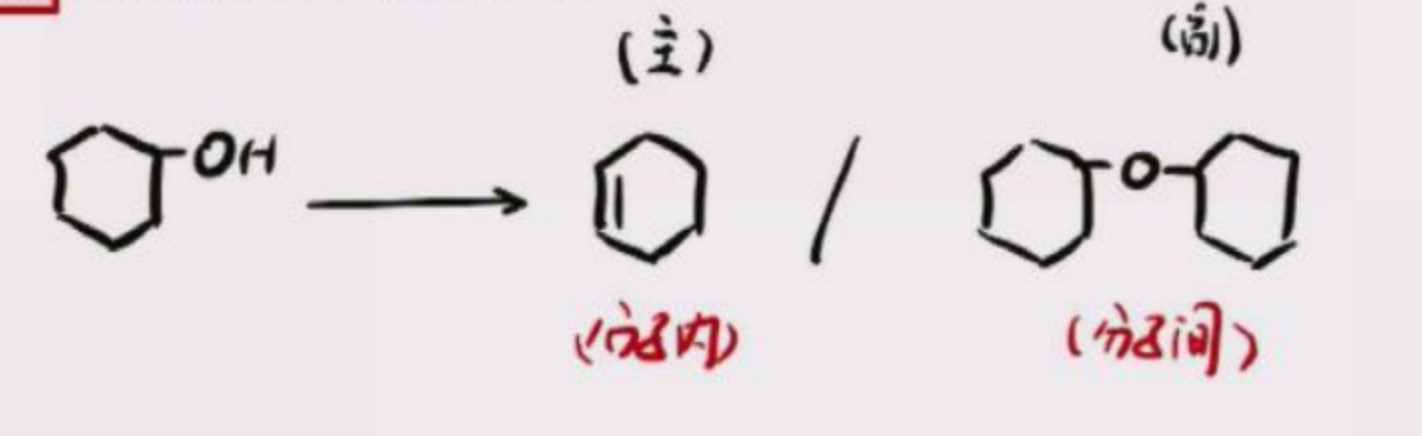 (主) (副)
OH O
(分子内) (分子间)